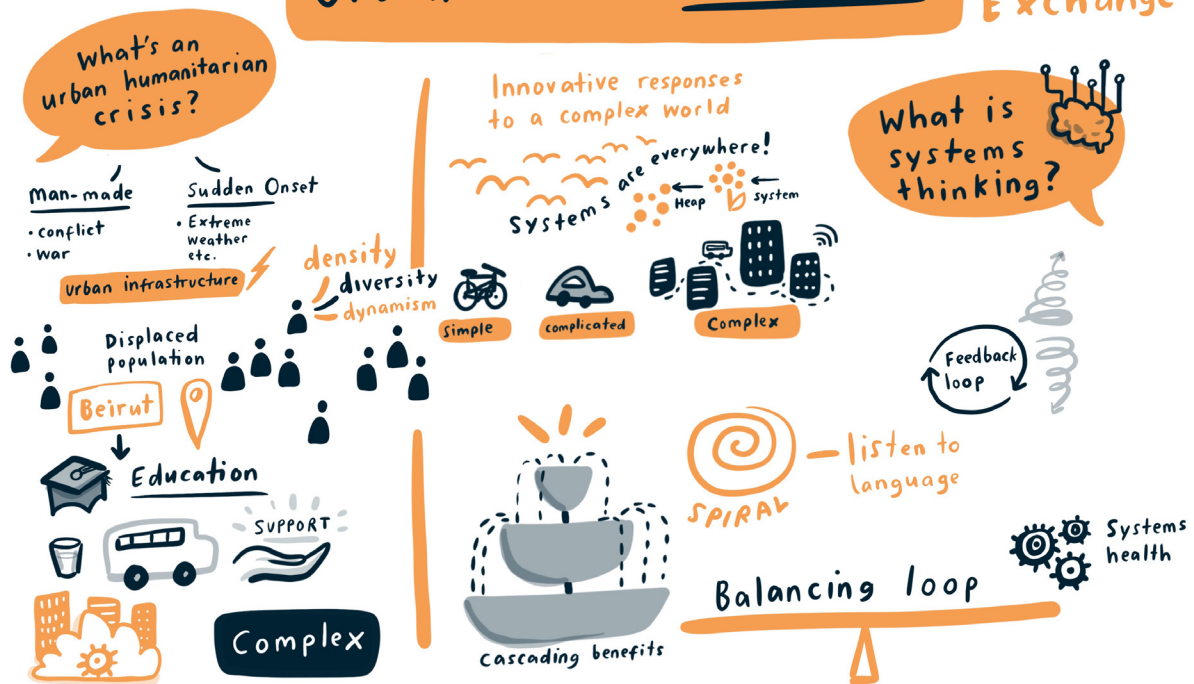 Exchange
What's an
urban humanitarian
crisis?
man-made
• conflict
• war
Sudden Onset
• Extreme
weather
etc.
urban infrastructure
density
diversity
dynamism
Displaced
population
Beirut
Education
SUPPORT
Complex
Innovative responses
to a complex world
Systems are everywhere!
Heap
System
Simple
complicated
Complex
Cascading benefits
SPIRAL
listen to
language
Balancing loop
What is
systems
thinking?
Feedback
loop
Systems
health